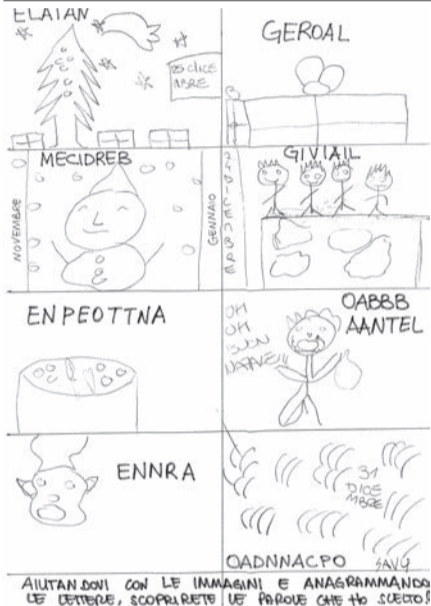 ELATAN
25 DICE
MBRE
GEROAL
MECIDREB
NOVEMBRE
GENNAIO
GIVIAIL
24 DICEMBRE
ENPEOTTNA
OABBB
AANTEL
OH
OH
BUON
NATALE!!
ENNRA
31
DICE
MBRE
OADNNACPO
SAVY
AIUTANDOVI CON LE IMMAGINI E ANAGRAMMANDO
LE LETTERE, SCOPRIRETE LE PAROLE CHE HO SCELTO!